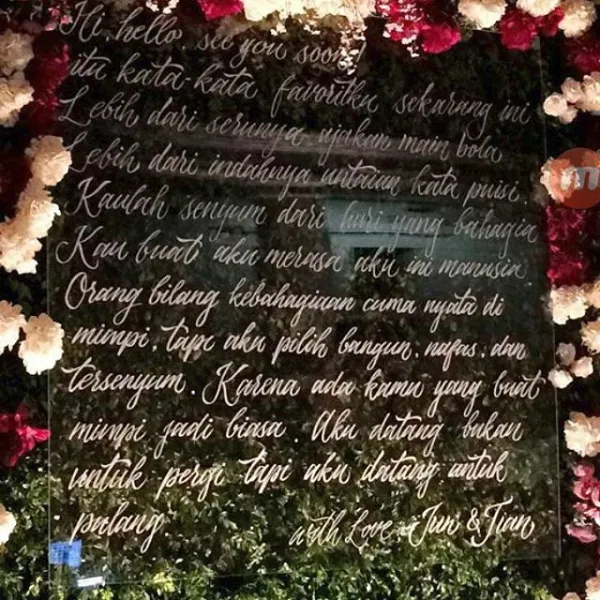 Hi, hello, see you soon!
itu kata-kata favoritku sekarang ini
Lebih dari serunya ajakan main bola
Lebih dari indahnya untaian kata puisi.
Kaulah senyum dari hari yang bahagia
Kau buat aku merasa aku ini manusia
Orang bilang kebahagiaan cuma nyata di
mimpi. tapi aku pilih bangun. nafas. dan
tersenyum. Karena ada kamu yang buat
mimpi jadi biasa. Aku datang bukan
untuk pergi tapi aku datang untuk
pulang
with Love - Jun & Tian